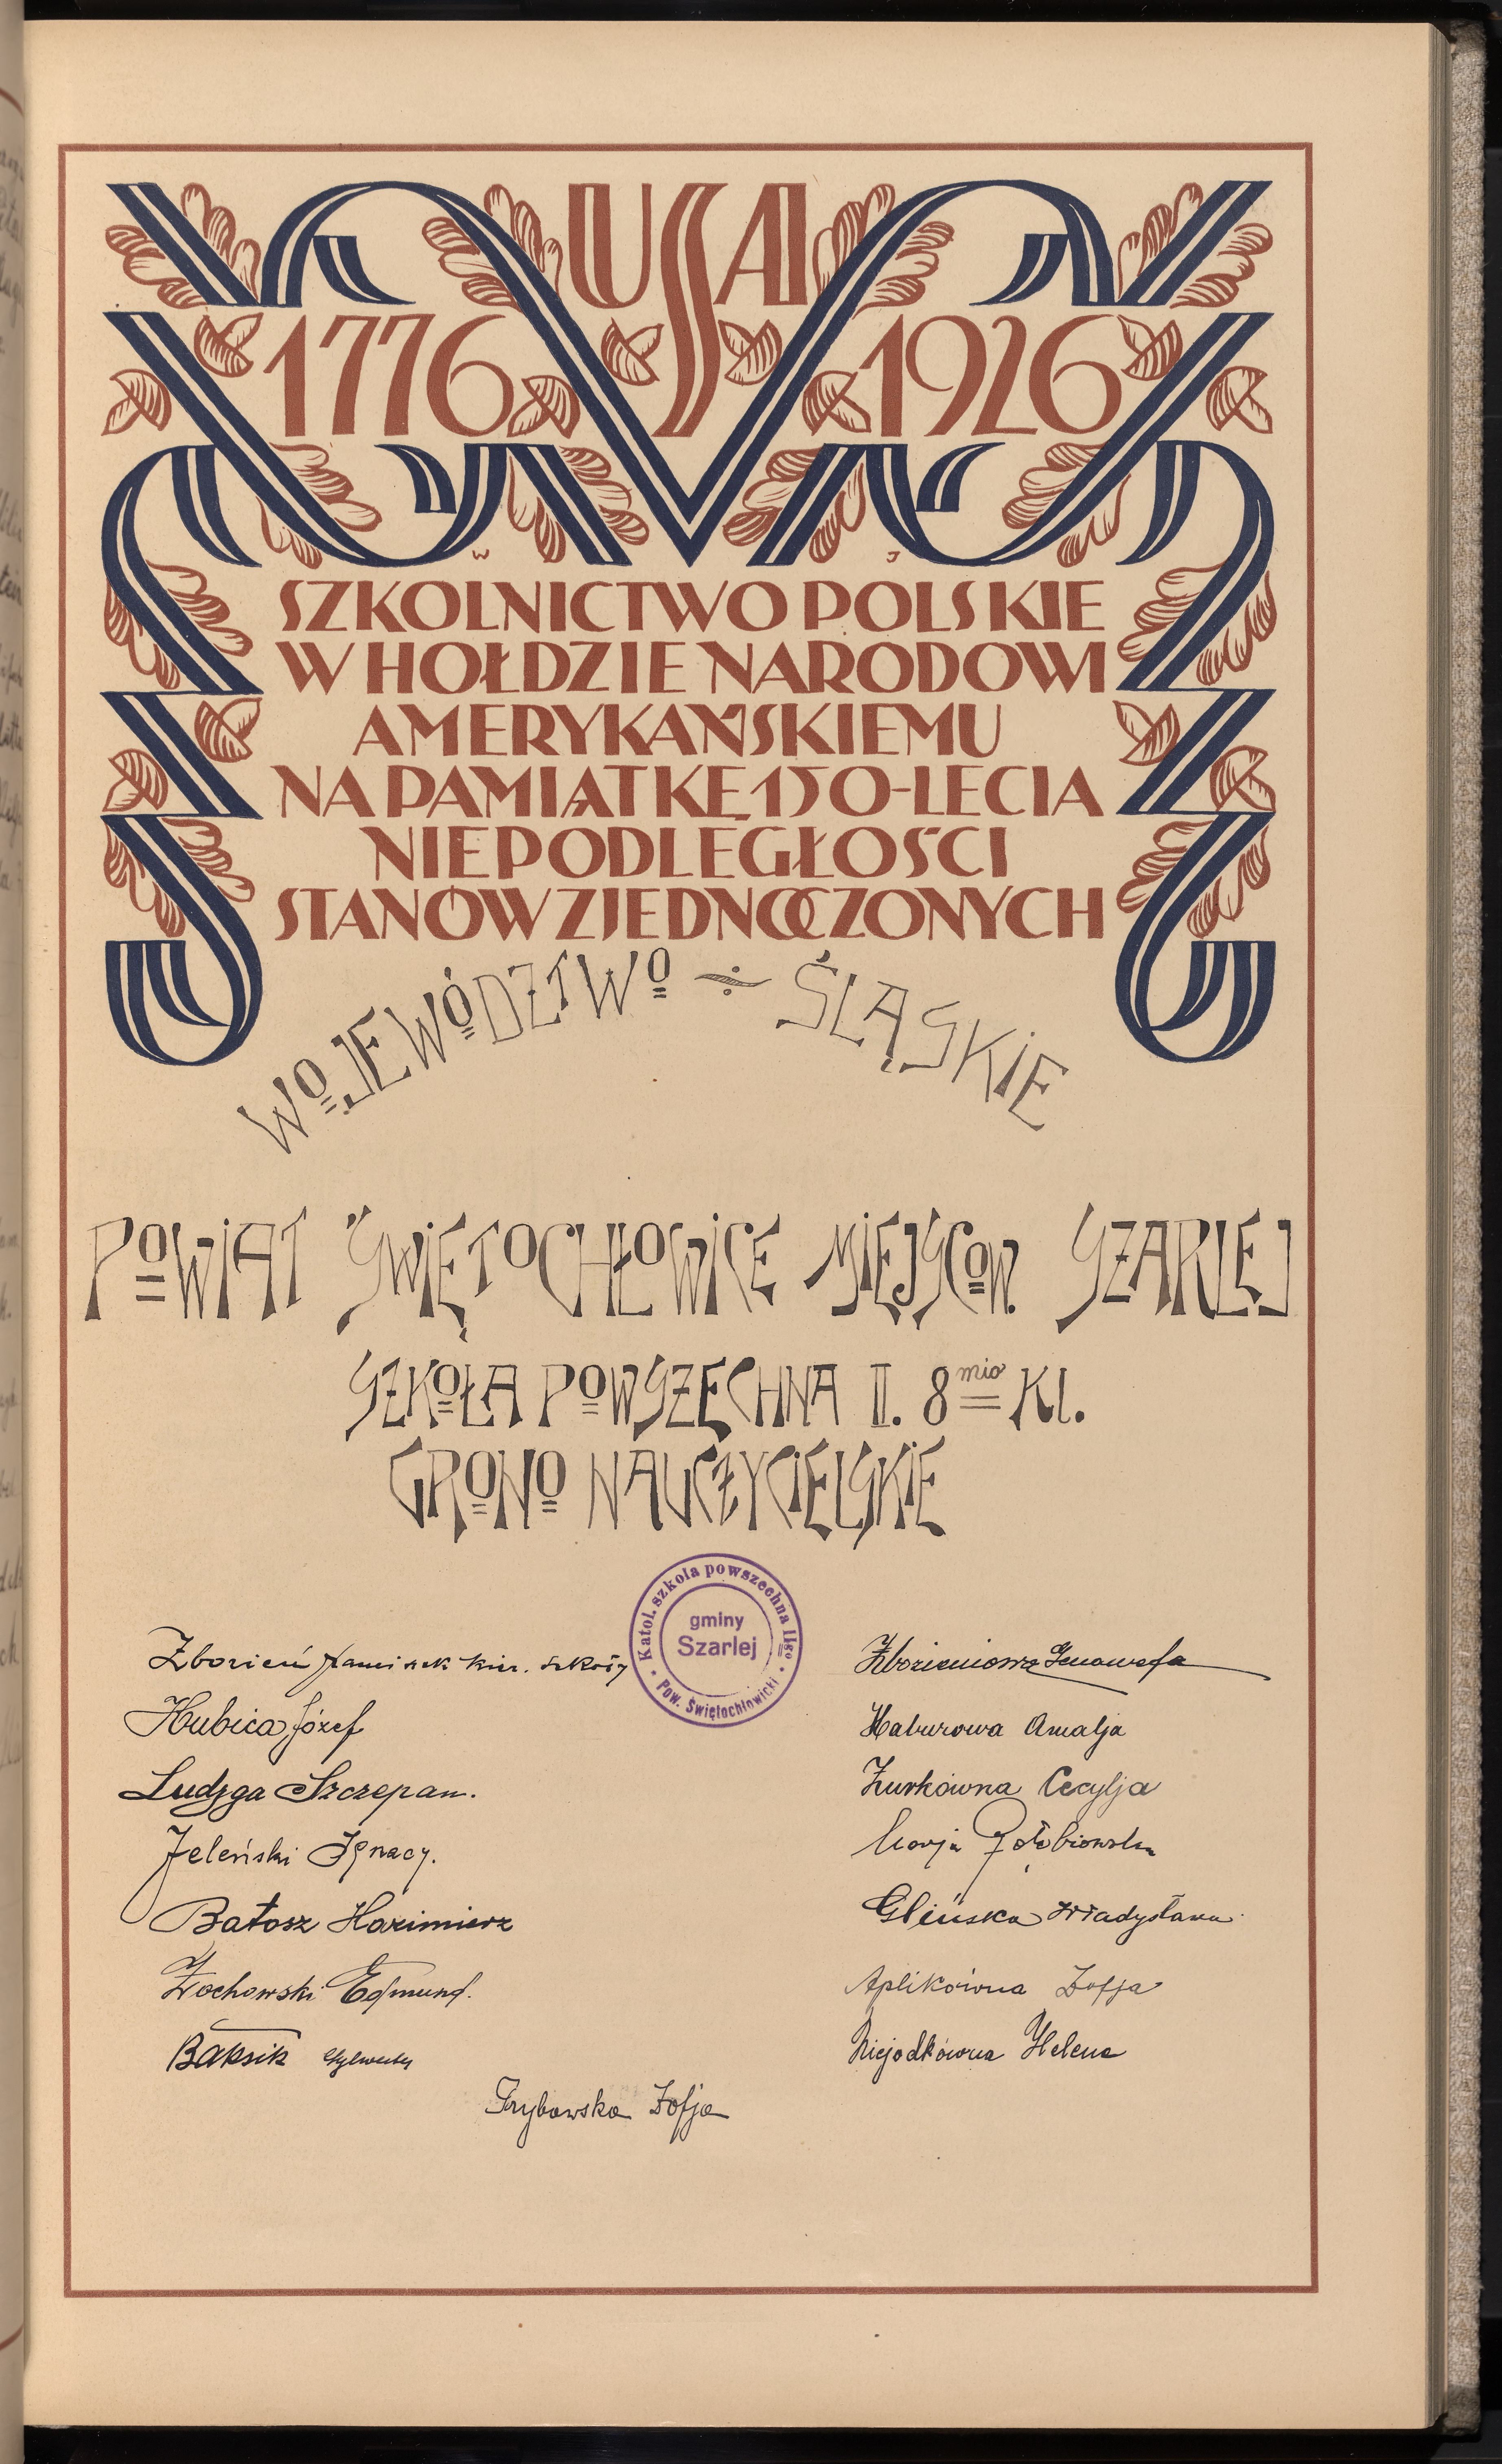 USA
1776 1926
W J
SZKOLNICTWO POLSKIE
W HOŁDZIE NARODOWI
AMERYKAŃSKIEMU
NA PAMIĄTKĘ 150-LECIA
NIEPODLEGŁOŚCI
STANÓW ZJEDNOCZONYCH
WOJEWÓDZTWO ÷ ŚLĄSKIE
POWIAT ŚWIĘTOCHŁOWICE MIEJSCOW. SZARLEJ
SZKOŁA POWSZECHNA II. 8mio Kl.
GRONO NAUCZYCIELSKIE
Katol. szkola powszechna IIgo
gminy
Szarlej
Pow. Świętochłowicki
Zborień kier. szkoły
Hubica Józef
Ludyga Szczepan.
Jeleński Ignacy.
Batosz Kazimierz
Żochowski Edmund.
Baksik Sylwester
Grybowska Zofja
Zborieniowa Genowefa
Haburowa Amalja
Żurkówna Cecylja
Marja Gołębiowska
Glińska Władysława
Aplikówna Zofja
Niejodkówna Helena